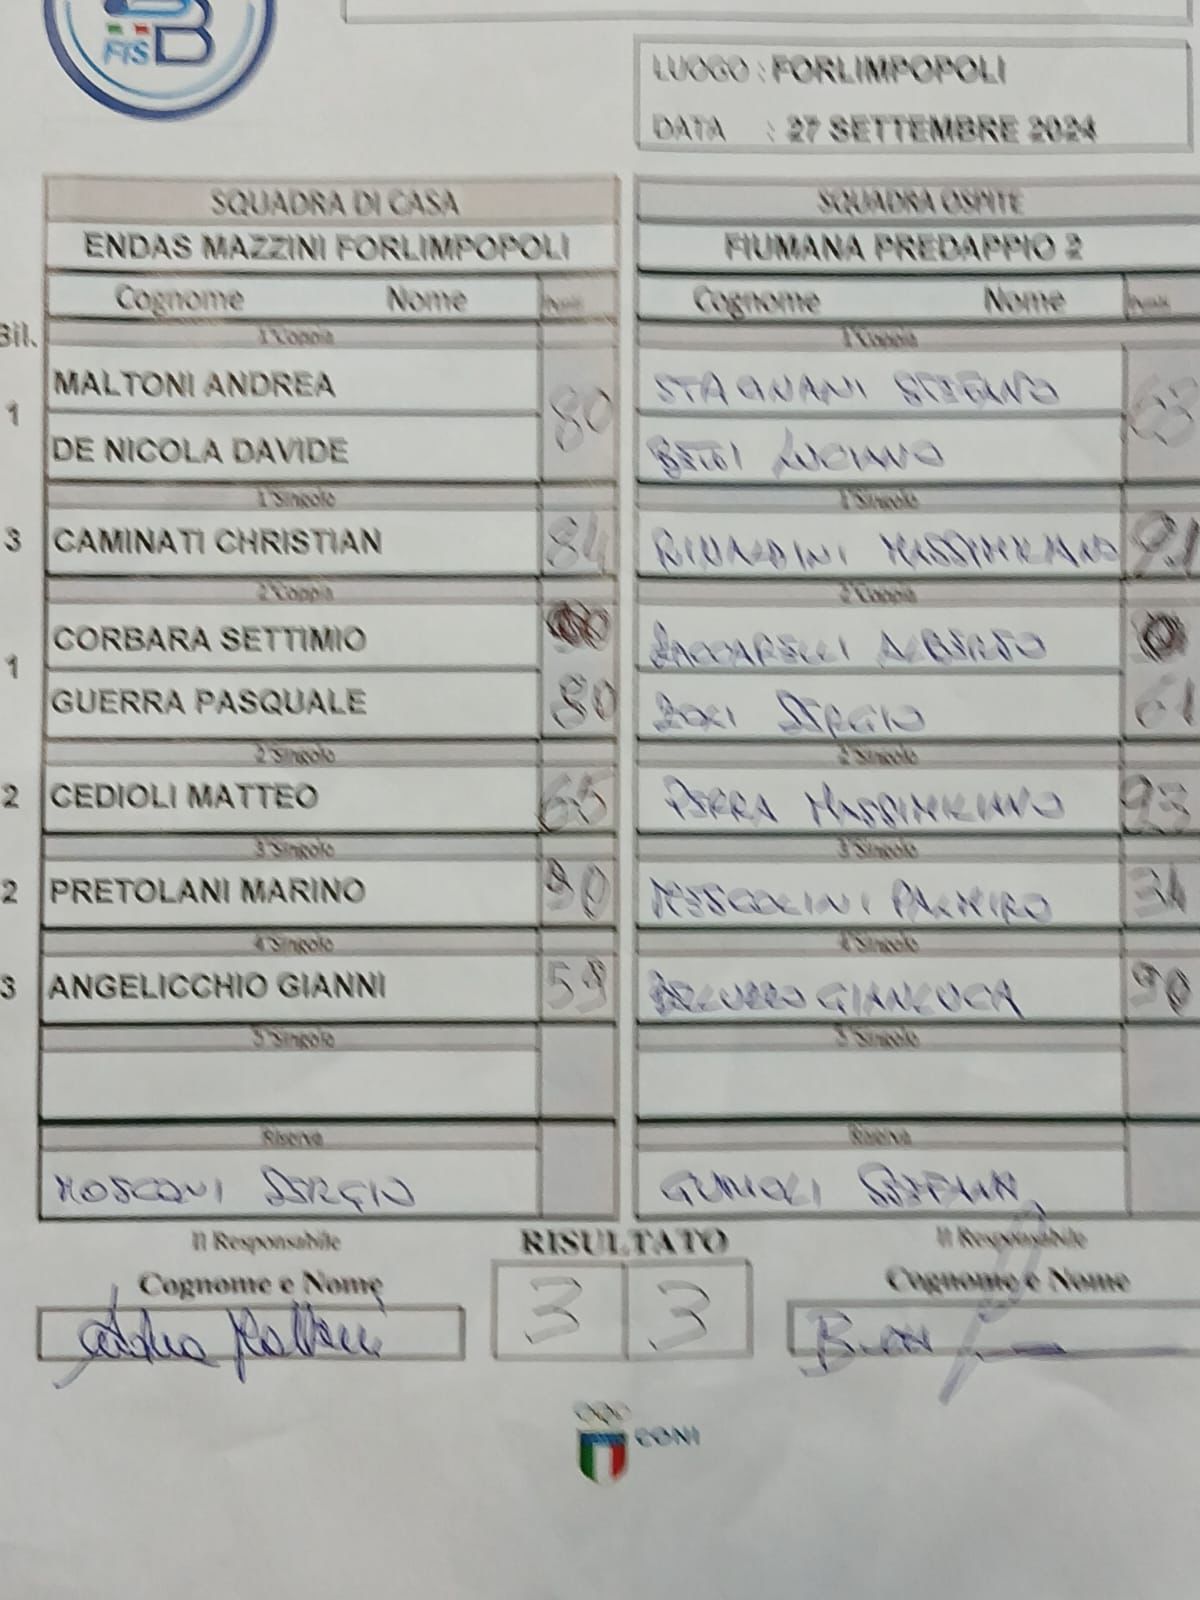 FISB
LUOGO : FORLIMPOPOLI
DATA : 27 SETTEMBRE 2024
SQUADRA DI CASA
ENDAS MAZZINI FORLIMPOPOLI
Cognome Nome Punti
Bil.
1°Coppia
MALTONI ANDREA
1 80
DE NICOLA DAVIDE
1°Singolo
3 CAMINATI CHRISTIAN 84
2°Coppia
CORBARA SETTIMIO
1
GUERRA PASQUALE 80
2°Singolo
2 CEDIOLI MATTEO 65
3°Singolo
2 PRETOLANI MARINO 90
4°Singolo
3 ANGELICCHIO GIANNI 59
5°Singolo
Riserva
MOSCONI SERGIO
SQUADRA OSPITE
FIUMANA PREDAPPIO 2
Cognome Nome Punti
1°Coppia
STAGNANI STEFANO
63
LUCIANO
1°Singolo
RINALDINI MASSIMILIANO 91
2°Coppia
ZACCARELLI ALBERTO
SERGIO 61
2°Singolo
PERRA MASSIMILIANO 93
3°Singolo
MISCOLINI PALMIRO
4°Singolo
GIANLUCA 90
5°Singolo
Riserva
Il Responsabile
Cognome e Nome
RISULTATO
3 3
Il Responsabile
Cognome e Nome
CONI